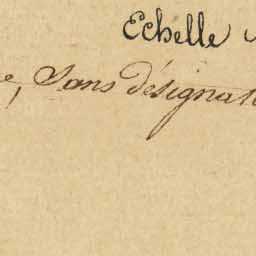 Echelle
e, Sans désignat